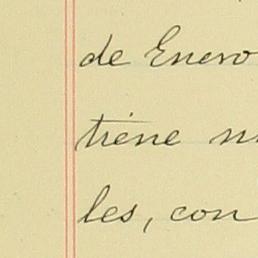 de Enero
tiene
les, con